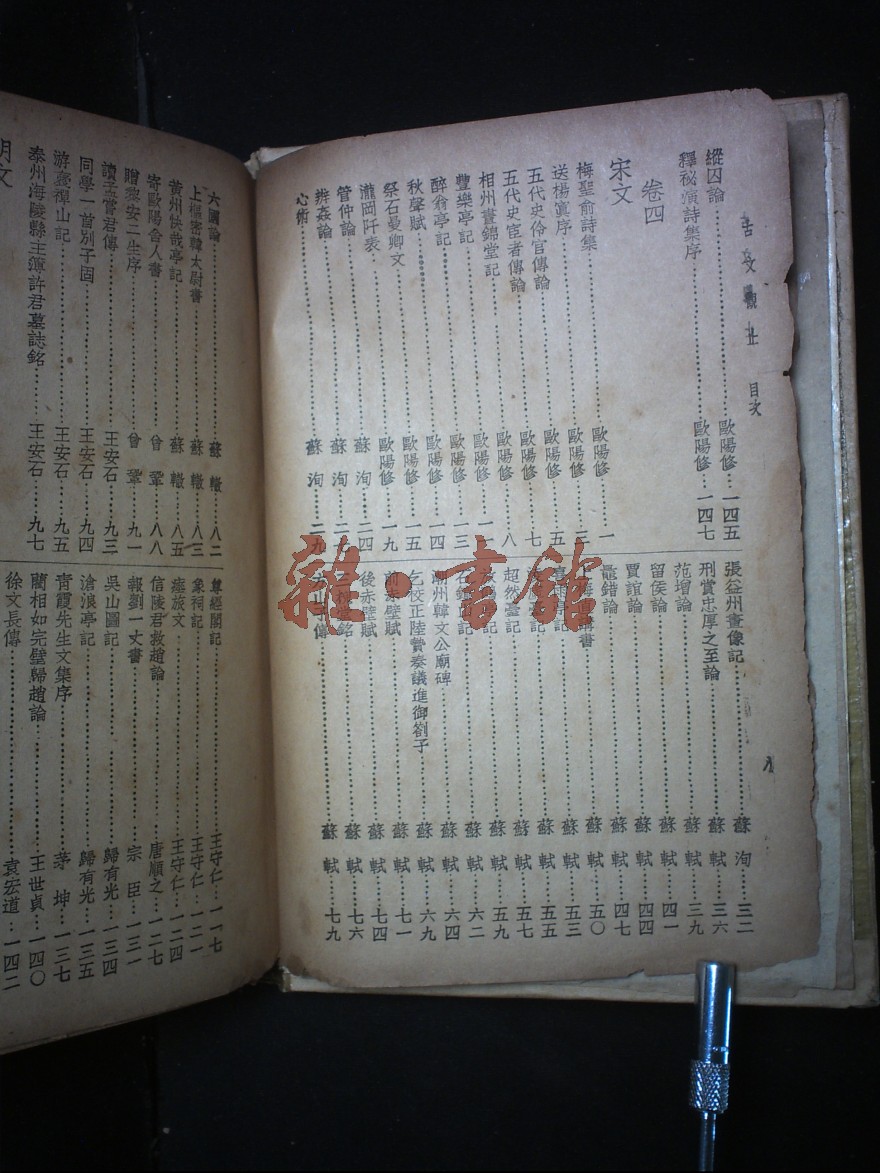 古文觀止　目次　八
縱囚論……歐陽修…一四五
釋秘演詩集序……歐陽修…一四七
卷四
宋文
梅聖俞詩集……歐陽修…一
送楊寘序……歐陽修…三
五代史伶官傳論……歐陽修…五
五代史宦者傳論……歐陽修…七
相州晝錦堂記……歐陽修…八
豐樂亭記……歐陽修…一一
醉翁亭記……歐陽修…一三
秋聲賦……歐陽修…一四
祭石曼卿文……歐陽修…一五
瀧岡阡表……歐陽修…一九
管仲論……蘇洵…二四
辨姦論……蘇洵…二七
心術……蘇洵…二九
張益州畫像記……蘇洵…三二
刑賞忠厚之至論……蘇軾…三六
范增論……蘇軾…三九
留侯論……蘇軾…四一
賈誼論……蘇軾…四四
鼂錯論……蘇軾…四七
上梅直講書……蘇軾…五〇
喜雨亭記……蘇軾…五三
臺記……蘇軾…五五
超然臺記……蘇軾…五七
放鶴亭記……蘇軾…五九
石鐘山記……蘇軾…六二
潮州韓文公廟碑……蘇軾…六四
乞校正陸贄奏議進御劄子……蘇軾…六九
前赤壁賦……蘇軾…七一
後赤壁賦……蘇軾…七四
三槐堂銘……蘇軾…七六
方山子傳……蘇軾…七九
六國論……蘇轍…八二
上樞密韓太尉書……蘇轍…八三
黃州快哉亭記……蘇轍…八五
寄歐陽舍人書……曾鞏…八八
贈黎安二生序……曾鞏…九一
讀孟嘗君傳……王安石…九三
同學一首別子固……王安石…九四
游褒禪山記……王安石…九五
泰州海陵縣主簿許君墓誌銘……王安石…九七
明文
尊經閣記……王守仁…一一七
象祠記……王守仁…一二一
瘞旅文……王守仁…一二四
信陵君救趙論……唐順之…一二七
報劉一丈書……宗臣…一三一
吳山圖記……歸有光…一三四
滄浪亭記……歸有光…一三五
青霞先生文集序……茅坤…一三七
藺相如完璧歸趙論……王世貞…一四〇
徐文長傳……袁宏道…一四二
雜·書館